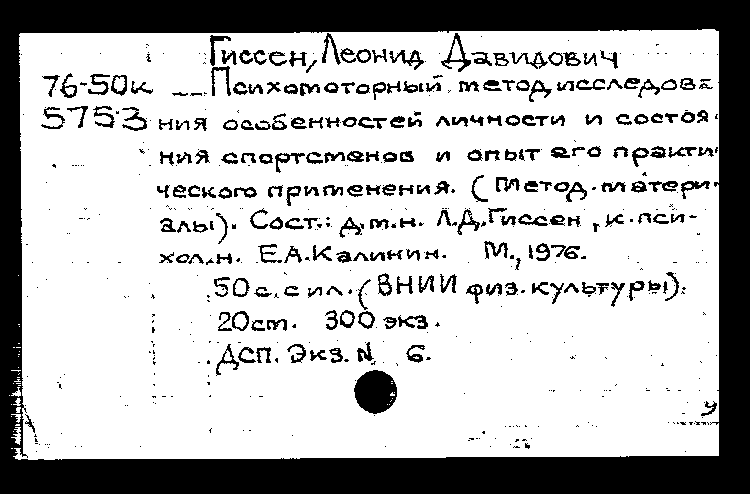 Гиссен, Леонид Давидович
76-50к — Психомоторный метод исследова-
5753 ния особенностей личности и состоя-
ния спортсменов и опыт его практи-
ческого применения. (Метод. матери-
алы). Сост.: д.т.н. Л.Д.Гиссен, к.пси-
хол.н. Е.А.Калинин. М., 1976.
50с. с ил. (ВНИИ физ. культуры).
20ст. 300 экз.
ДСП. Экз. N 6.
у